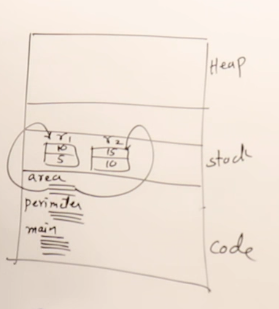 Heap
r1 r2
10 15
5 10
stack
area
perimeter
main
code